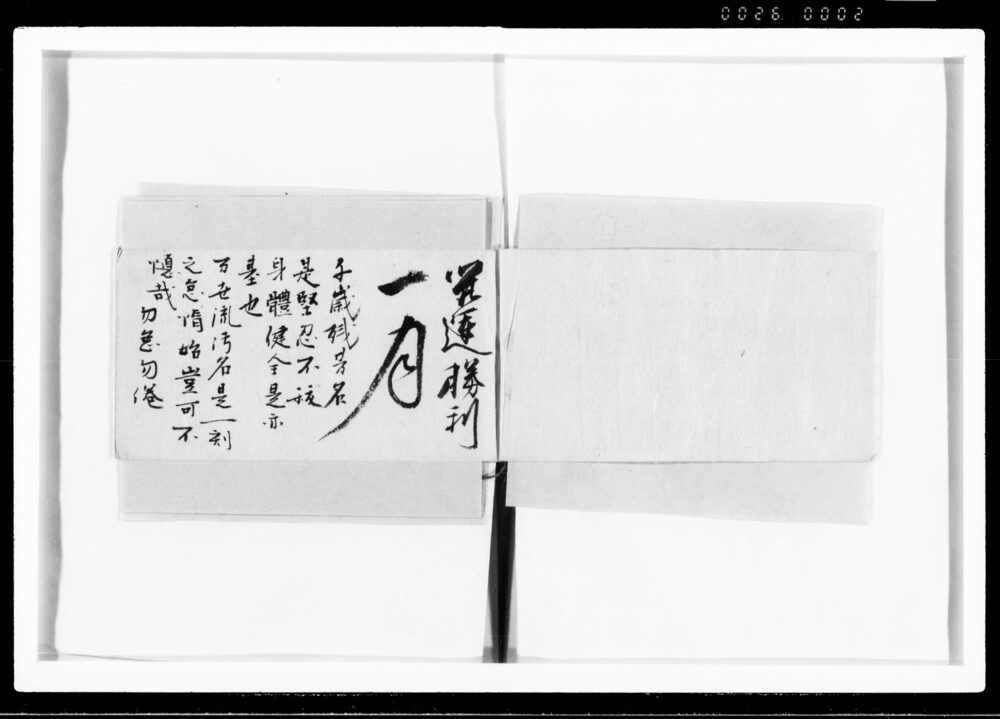 0026 0002
運勝利
一月
千歳残芳名
是堅忍不
身體健全是亦
基也
万世流汚名是一刻
之怠惰始豈可不
慎哉
勿怠勿倦